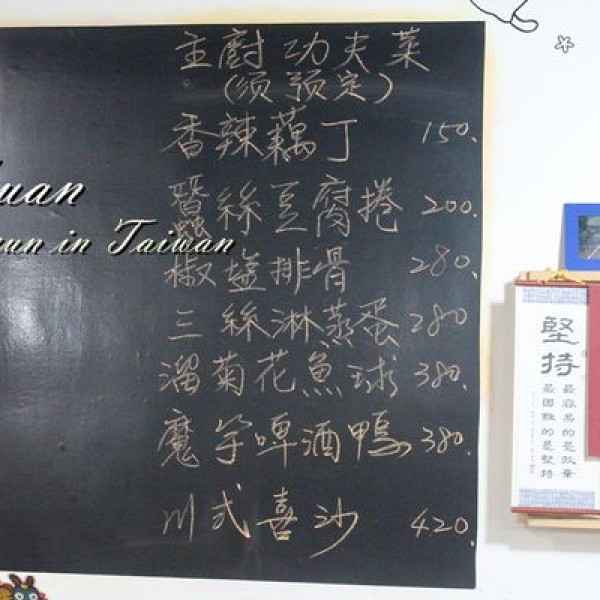 主廚功夫菜
(须预定)
香辣藕丁 150.
蠶絲豆腐捲 200.
椒塩排骨 280.
三絲淋蒸蛋 280
溜菊花魚球 380.
魔芋啤酒鴨 380.
川式喜沙 420.
uan
un in Taiwan
堅持
最容易的是放棄
最困難的是堅持